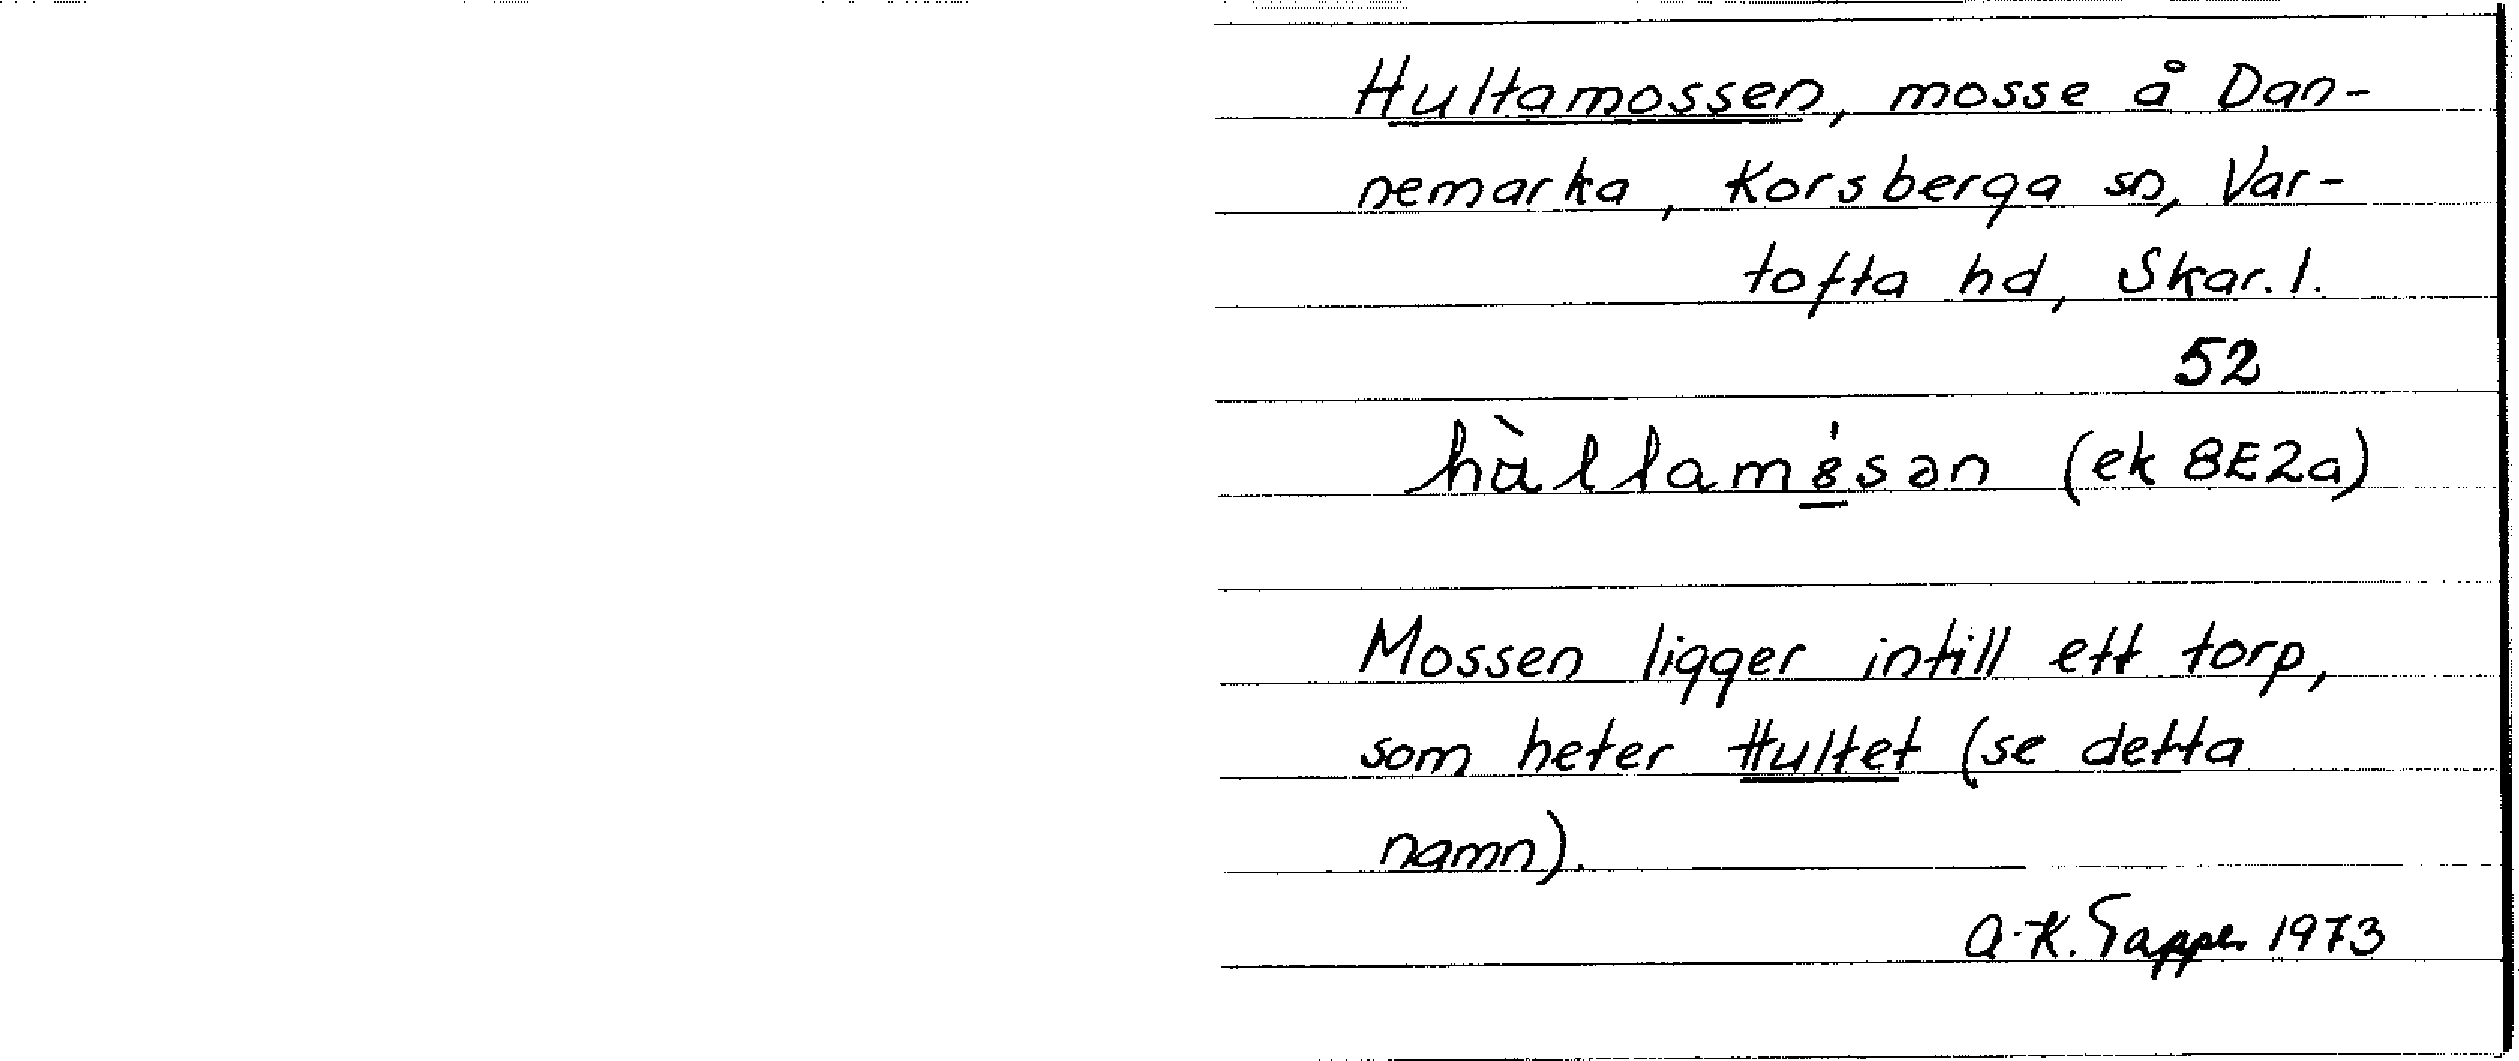 Hultamossen, mosse å Dan-
nemarka, Korsberga sn, Var-
tofta hd, Skar. l.
52
(ek 8E2a)
Mossen ligger intill ett torp,
som heter Hultet (se detta
namn).
A-K. Tapper 1973